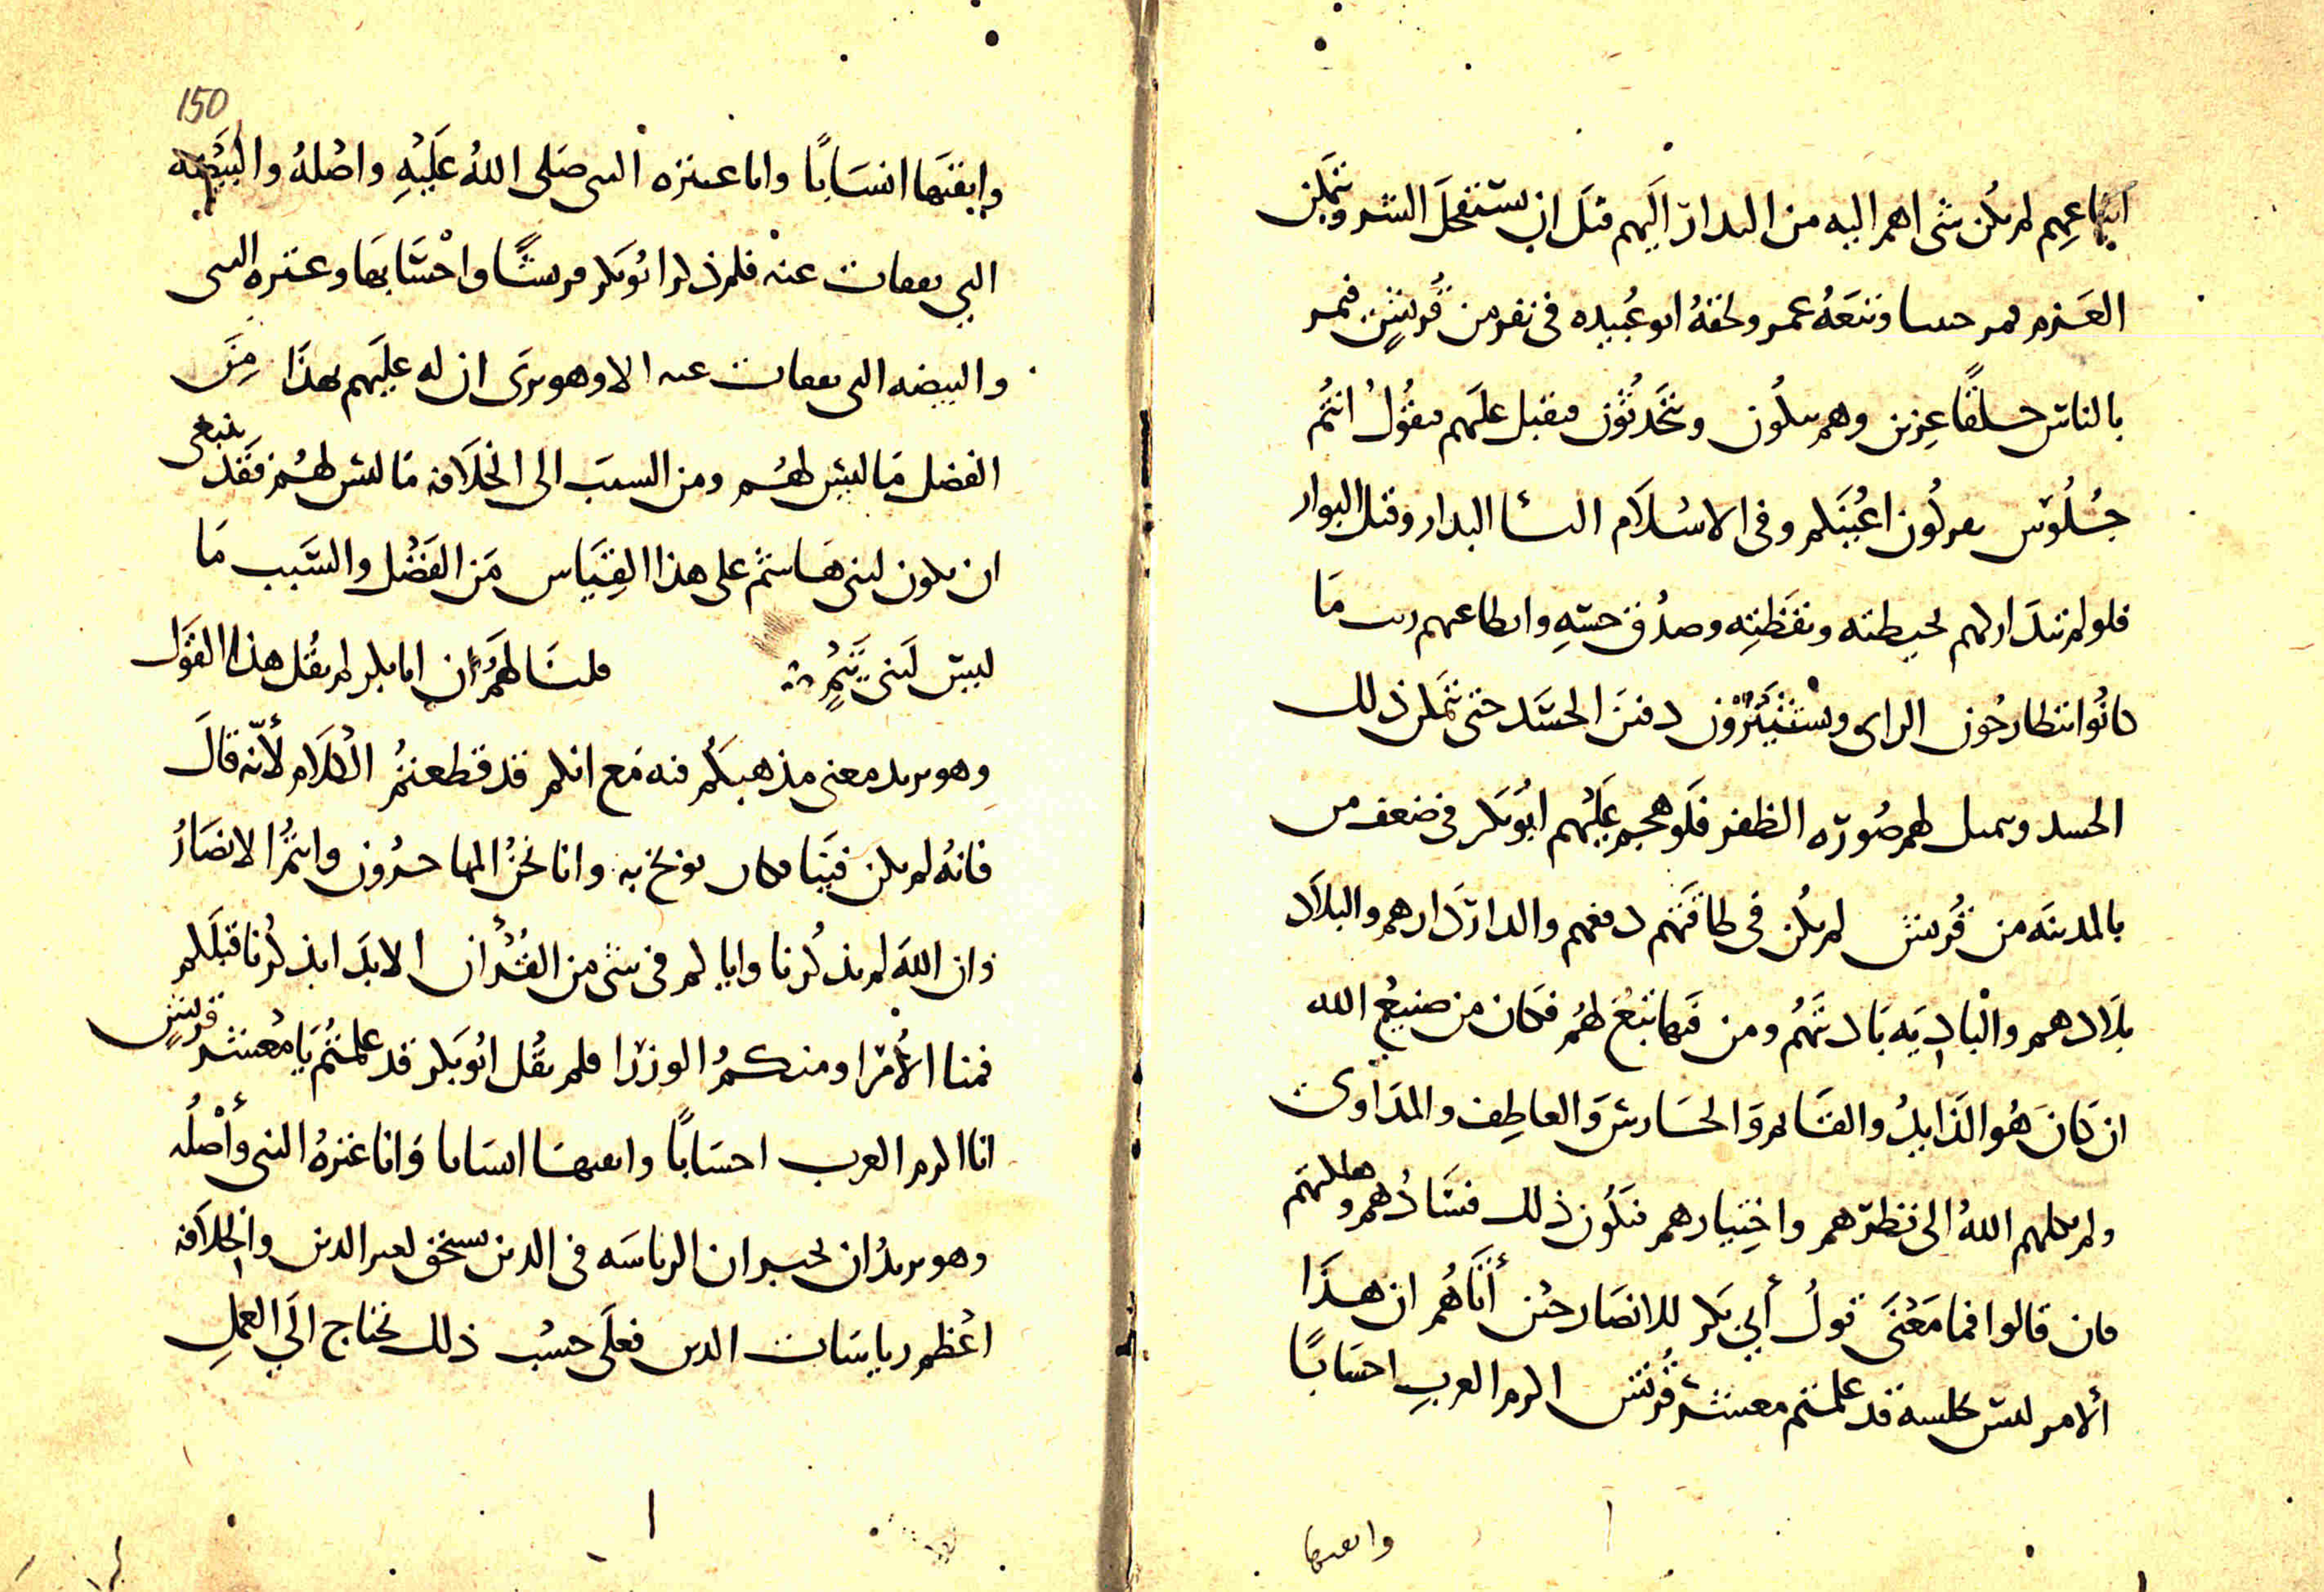 اتباعهم لم يكن شى اهم اليه من البدار اليهم قبل ان يستفحل الشر ويتمكن
العزم فمر حثيثا وتبعه عمر ولحقه ابو عبيده في نفر من قريش فمر
بالناس حلقا عزين وهم يبكون ويتحدثون فيقبل عليهم فيقول انتم
جلوس اعينكم وفى الاسلام البدار وقبل البوار
فلو لم يتداركهم بحيطته وتيقظته وصدق حسه وانطاعهم ريث ما
كانوا يتطارحون الراى ويستثيرون دفين الحسد حتى يتمكن ذلك
الحسد ويمثل لهم صورة الظفر فلو هجم عليهم ابو بكر في ضعف من
بالمدينه من قريش لم يكن في طاقتهم دفعهم والدار دارهم والبلاد
بلادهم والباديه باديتهم ومن فيها تبع لهم فكان من صنيع الله
ان كان هو الذايد والقايم والحارس والعاطف والمداوى
ولم يكلهم الله الى نظرهم واختيارهم فيكون ذلك فسادهم وهلكتهم
فان قالوا فما معنى قول أبي بكر للانصار حين أتاهم ان هذا
ألامر ليس قد علمتم معشر قريش اكرم العرب احسابا
واثقبها
150
واثقبها انسابا وانا عترة النبى صلى الله عليه واصله والبيضه
التي تفقات عنه فلم ذكر ابو بكر قريشا واحسابها وعتره النبى
والبيضه التى تفقات عنه الا وهو يرى ان له عليهم بهذا من
الفضل ما ليس لهم ومن السبب الى الخلافه ما ليس لهم فقد ينبغى
ان يكون لبنى هاشم على هذا القياس من الفضل والسبب ما
ليس لبنى تيم قلنا لهم ان ابا بكر لم يقل هذا القول
وهو يريد معنى مذهبكم فيه مع انكم قد قطعتم الكلام لأنه قال
فانه لم يكن فينا بخ به وانا نحن المهاجرون وانتم الانصار
وان الله لم يذكرنا واياكم في شى من القرأن الا بدا بذكرنا قبلكم
فمنا الأمرا ومنكم الوزرا فلم يقل ابو بكر قد علمتم يا معشر قريش
انا اكرم العرب احسابا واثقبها انسابا وانا عترة النبى وأصله
وهو يريد ان يخبر ان الرياسه في الدين تستحق لغير الدين والخلافه
اعظم رياسات الدين فعلى حسب ذلك تحتاج الي العمل